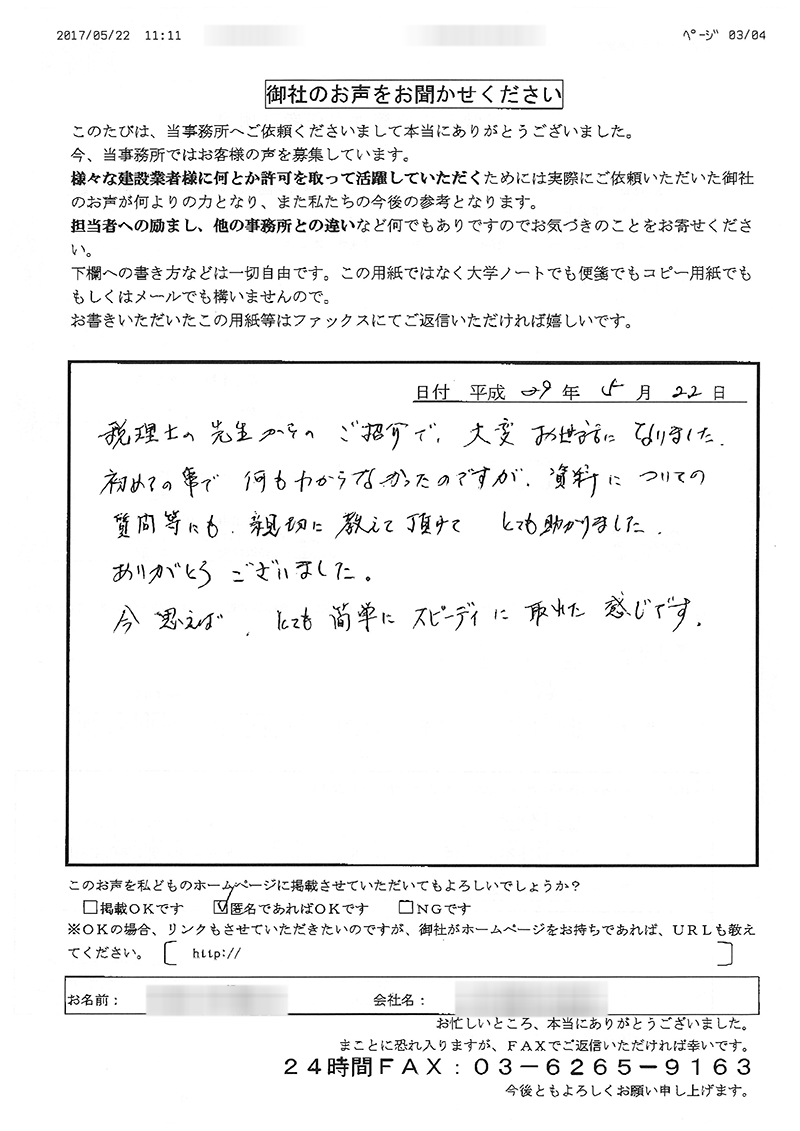 2017/05/22 11:11 ﾍﾟｰｼﾞ 03/04
御社のお声をお聞かせください
このたびは、当事務所へご依頼くださいまして本当にありがとうございました。
今、当事務所ではお客様の声を募集しています。
様々な建設業者様に何とか許可を取って活躍していただくためには実際にご依頼いただいた御社
のお声が何よりの力となり、また私たちの今後の参考となります。
担当者への励まし、他の事務所との違いなど何でもありですのでお気づきのことをお寄せくださ
い。
下欄への書き方などは一切自由です。この用紙ではなく大学ノートでも便箋でもコピー用紙でも
もしくはメールでも構いませんので。
お書きいただいたこの用紙等はファックスにてご返信いただければ嬉しいです。
日付 平成 29 年 5 月 22 日
税理士の先生からのご紹介で、大変お世話になりました。
初めての事で何もわからなかったのですが、資料についての
質問等にも、親切に教えて頂けてとても助かりました。
ありがとうございました。
今思えば、とても簡単にスピーディに取れた感じです。
このお声を私どものホームページに掲載させていただいてもよろしいでしょうか？
□掲載ＯＫです ☑匿名であればＯＫです □ＮＧです
※ＯＫの場合、リンクもさせていただきたいのですが、御社がホームページをお持ちであれば、ＵＲＬも教え
てください。〔 http:// 〕
お名前： 会社名：
お忙しいところ、本当にありがとうございました。
まことに恐れ入りますが、ＦＡＸでご返信いただければ幸いです。
２４時間ＦＡＸ：０３－６２６５－９１６３
今後ともよろしくお願い申し上げます。